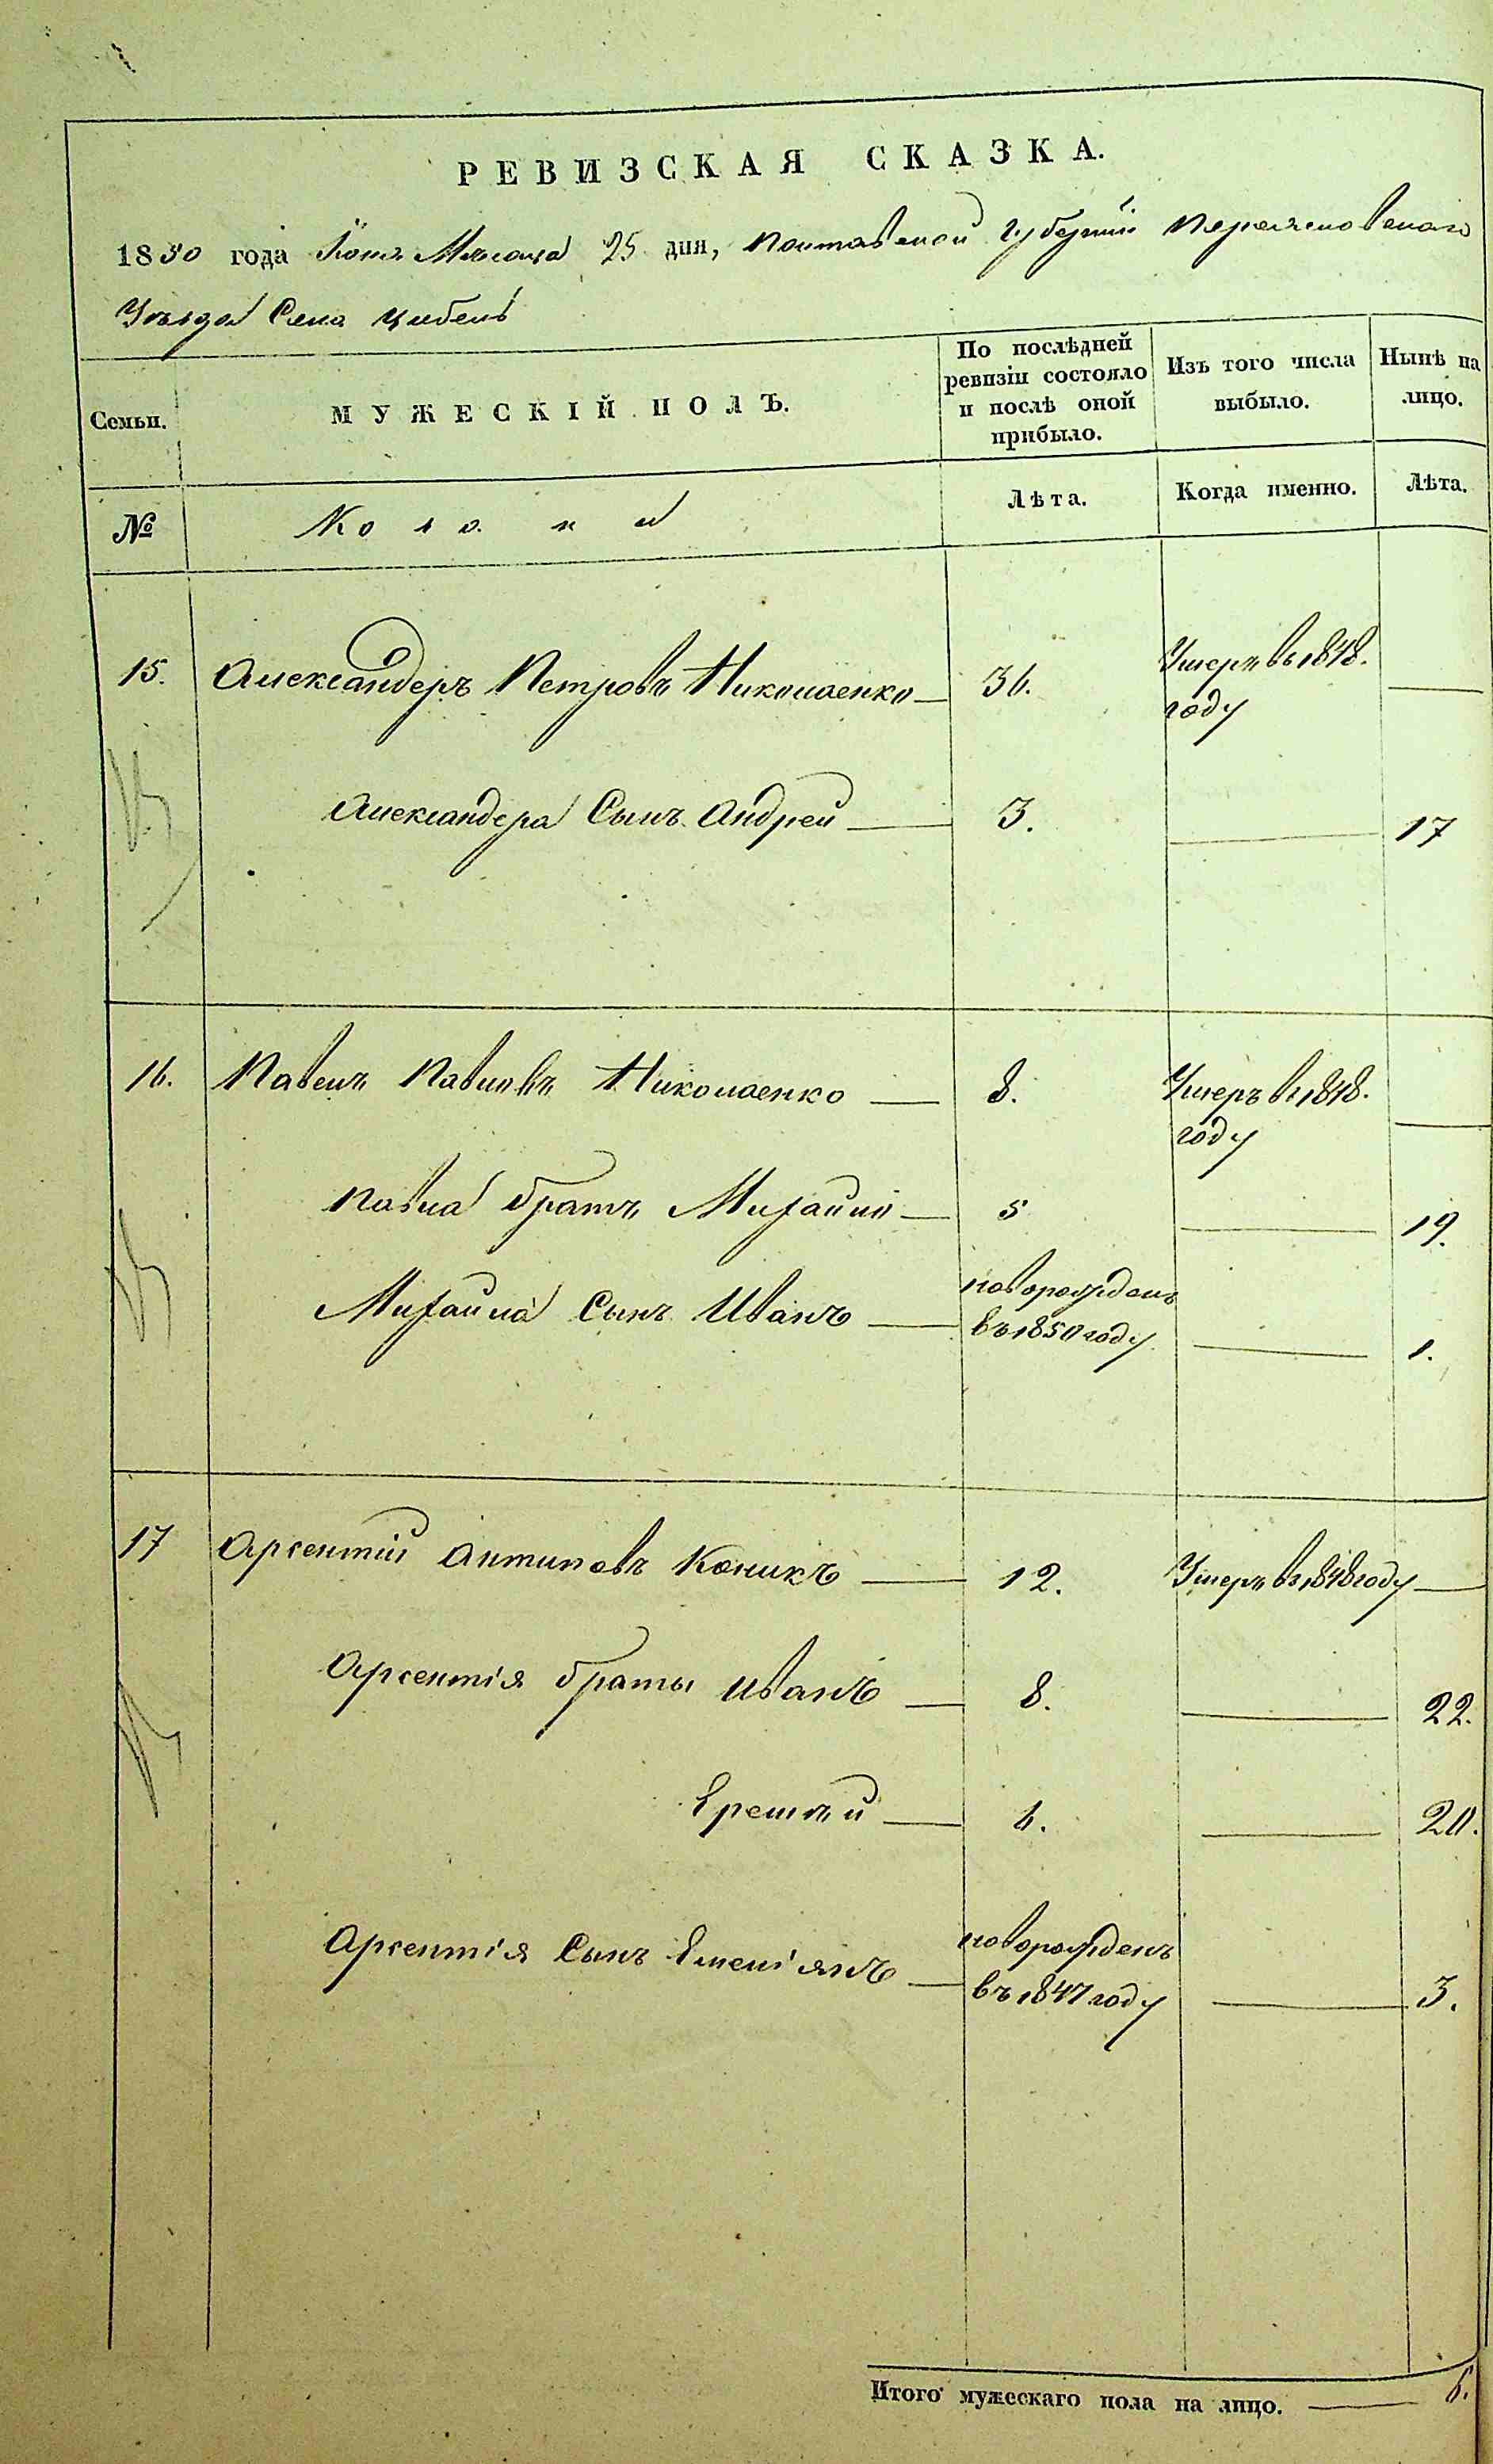 РЕВИЗСКАЯ СКАЗКА.
1850 года Іюня Мѣсяца 25 дня, Полтавской Губерніи Переяславскаго
Уѣзда Села Цибель
Семьи.
МУЖЕСКІЙ ПОЛЪ.
По послѣдней ревизіи состояло и послѣ оной прибыло.
Изъ того числа выбыло.
Нынѣ на лицо.
№
Лѣта.
Когда именно.
Лѣта.
15. Александеръ Петровъ Николаенко — 36. Умеръ въ 1848. году —
Александера Сынъ Андрей — 3. — 17
16. Павелъ Павловъ Николаенко — 8. Умеръ въ 1848. году —
Павла братъ Михайло — 5 — 19.
Михайла Сынъ Иванъ — новорожденъ въ 1850 году — 1.
17 Арсентій Антиповъ Коникъ — 12. Умеръ въ 1848 году —
Арсентія браты Иванъ — 8. — 22.
Еремѣй — 6. — 20.
Арсентія Сынъ Емеліянъ — новорожденъ въ 1847 году — 3.
Итого мужескаго пола на лицо. — 6.